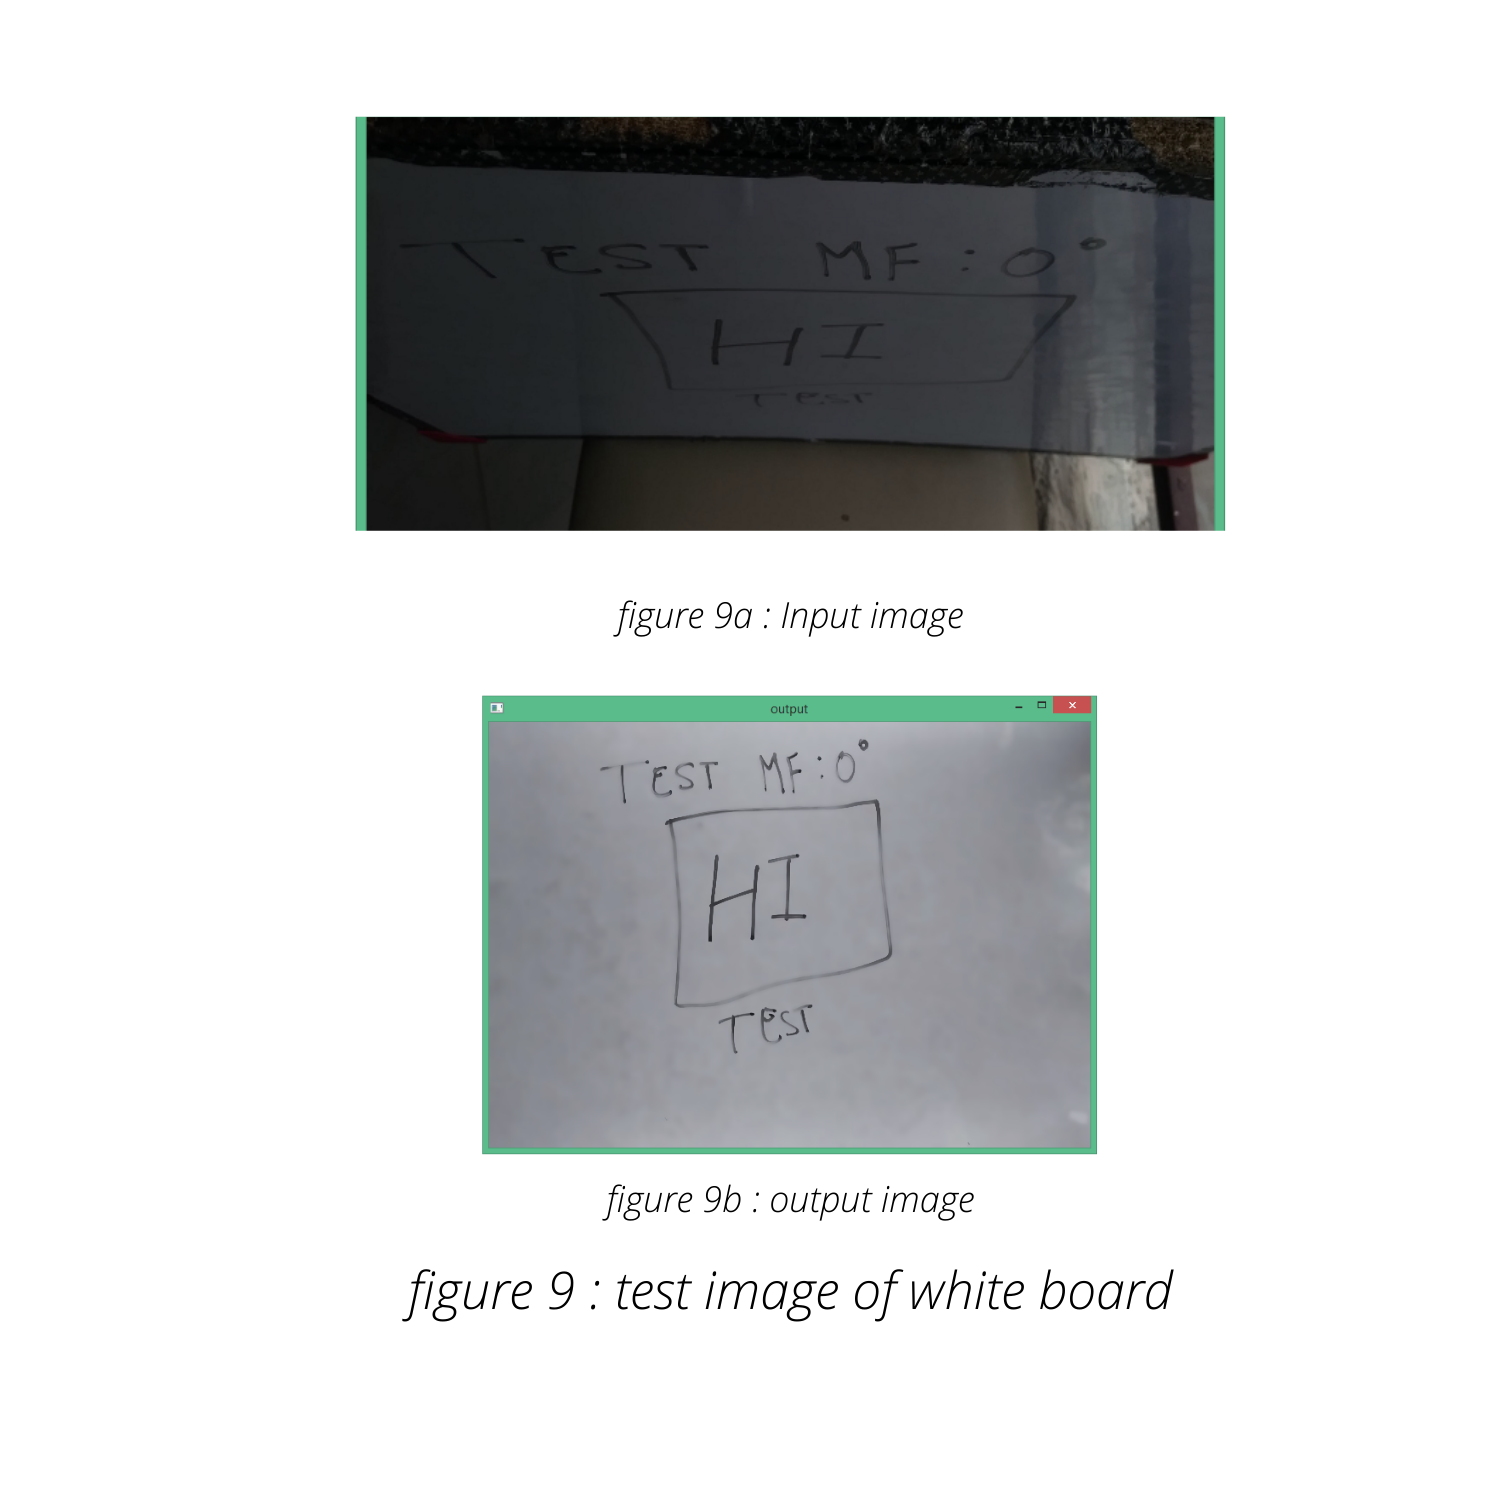 TEST MF:0°
HI
TEST
figure 9a : Input image
output
TEST MF:0°
HI
TEST
figure 9b : output image
figure 9 : test image of white board